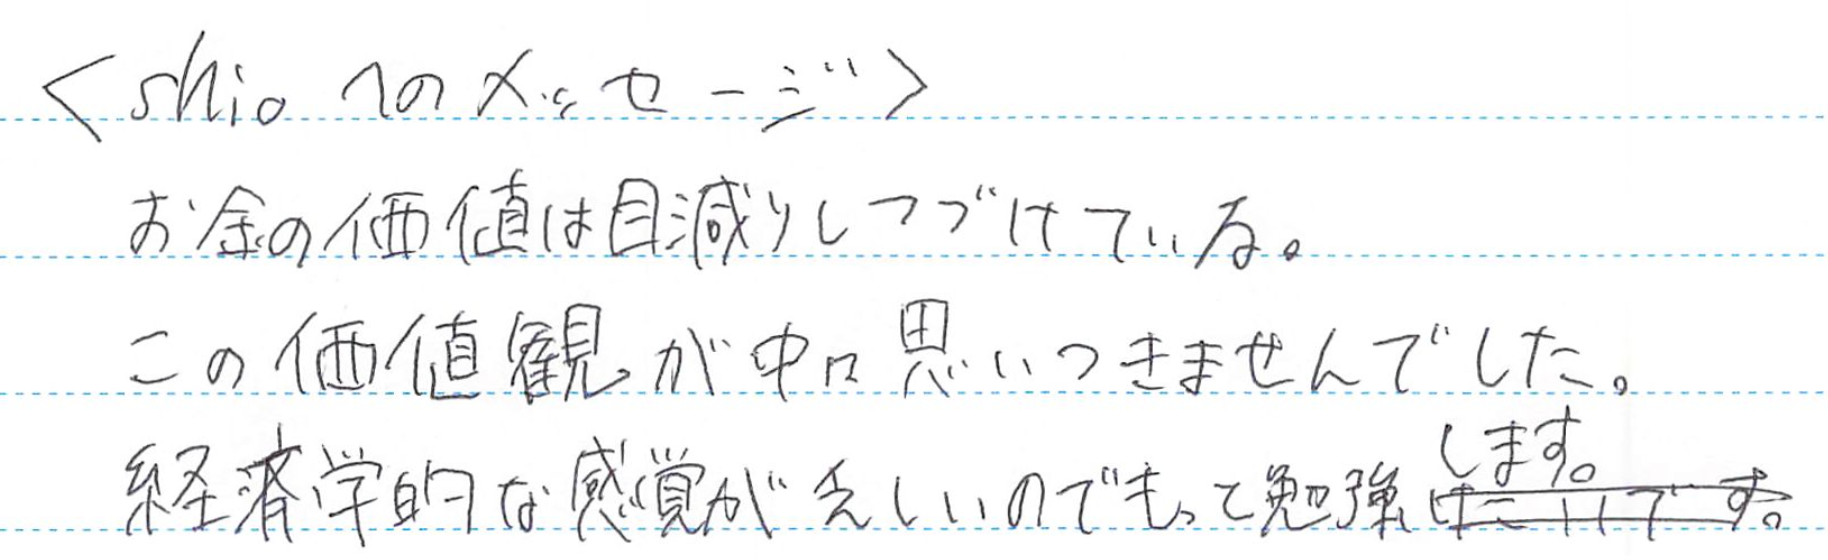 <shioへのメッセージ>
お金の価値は目減りしつづけている。
この価値観が中々思いつきませんでした。
経済学的な感覚が乏しいのでもっと勉強します。